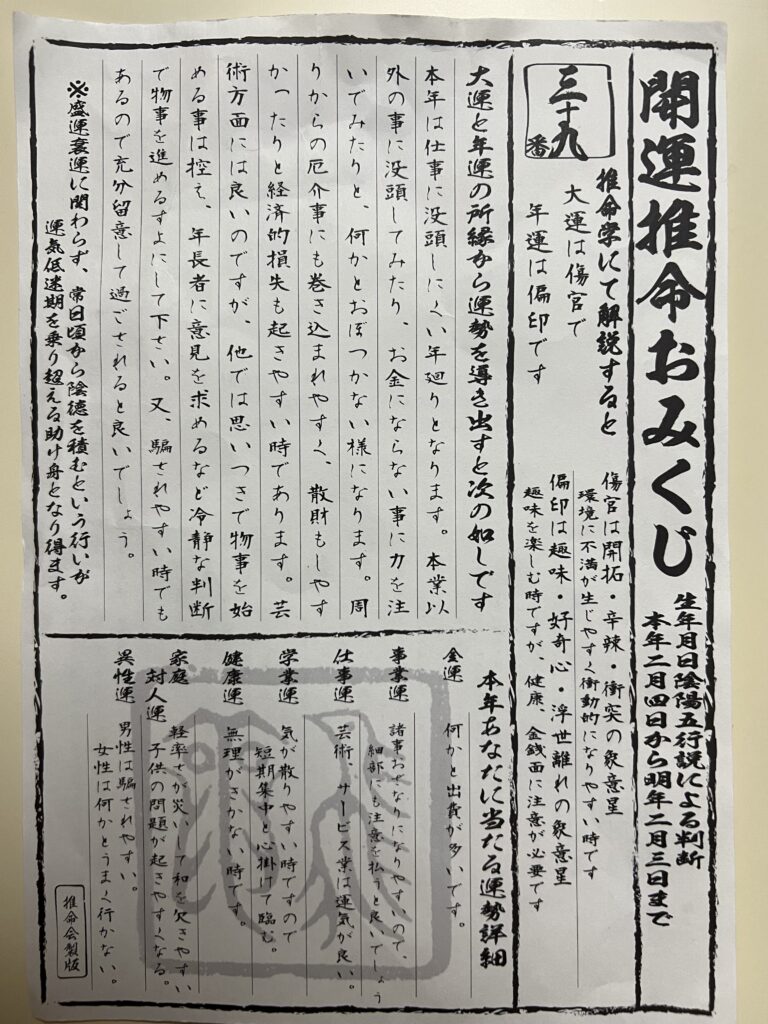 開運推命おみくじ
生年月日陰陽五行説による判断
本年二月四日から明年二月三日まで
三十九番
推命学にて解説すると
大運は傷官で
年運は偏印です
傷官は開拓・辛辣・衝突の象意星
環境に不満が生じやすく衝動的になりやすい時です
偏印は趣味・好奇心・浮世離れの象意星
趣味を楽しむ時ですが、健康、金銭面に注意が必要です
大運と年運の所縁から運勢を導き出すと次の如しです
本年は仕事に没頭しにくい年廻りとなります。本業以
外の事に没頭してみたり、お金にならない事に力を注
いでみたりと、何かとおぼつかない様になります。周
りからの厄介事にも巻き込まれやすく、散財もしやす
かったりと経済的損失も起きやすい時であります。芸
術方面には良いのですが、他では思いつきで物事を始
める事は控え、年長者に意見を求めるなど冷静な判断
で物事を進めるすよにして下さい。又、騙されやすい時でも
あるので充分留意して過ごされると良いでしょう。
※盛運衰運に関わらず、常日頃から陰徳を積むという行いが
運気低迷期を乗り超える助け舟となり得ます。
本年あなたに当たる運勢詳細
金運
何かと出費が多いです。
事業運
諸事おざなりになりやすいので、
細部にも注意を払うと良いでしょう
仕事運
芸術、サービス業は運気が良い。
学業運
気が散りやすい時ですので
短期集中と心掛けて臨む。
健康運
無理がきかない時です。
家庭
対人運
軽率さが災いして和を欠きやすい
子供の問題が起きやすくなる。
異性運
男性は騙されやすい。
女性は何かとうまく行かない。
推命会製版